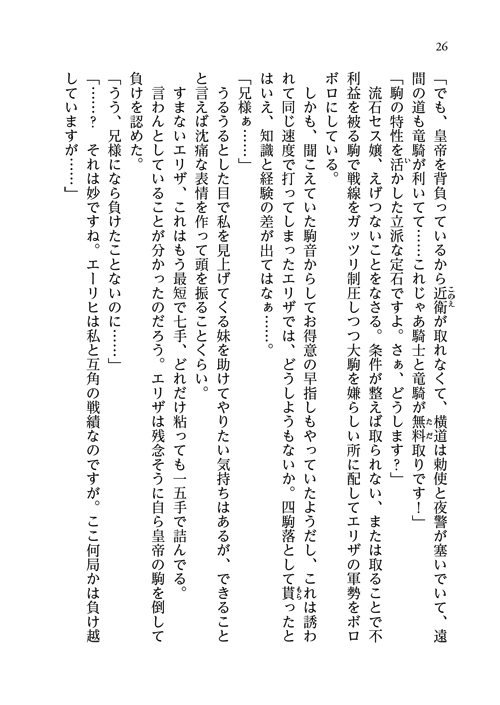 26
「でも、皇帝を背負っているから近衛が取れなくて、横道は勅使と夜警が塞いでいて、遠
間の道も竜騎が利いてて……これじゃあ騎士と竜騎が無料取りです！」
「駒の特性を活かした立派な定石ですよ。さぁ、どうします？」
　流石セス嬢、えげつないことをなさる。条件が整えば取られない、または取ることで不
利益を被る駒で戦線をガッツリ制圧しつつ大駒を嫌らしい所に配してエリザの軍勢をボロ
ボロにしている。
　しかも、聞こえていた駒音からしてお得意の早指しもやっていたようだし、これは誘わ
れて同じ速度で打ってしまったエリザでは、どうしようもないか。四駒落として貰ったと
はいえ、知識と経験の差が出てはなぁ……。
「兄様ぁ……」
　うるうるとした目で私を見上げてくる妹を助けてやりたい気持ちはあるが、できること
と言えば沈痛な表情を作って頭を振ることくらい。
　すまないエリザ、これはもう最短で七手、どれだけ粘っても一五手で詰んでる。
　言わんとしていることが分かったのだろう。エリザは残念そうに自ら皇帝の駒を倒して
負けを認めた。
「うう、兄様になら負けたことないのに……」
「……？　それは妙ですね。エーリヒは私と互角の戦績なのですが。ここ何局かは負け越
していますが……」